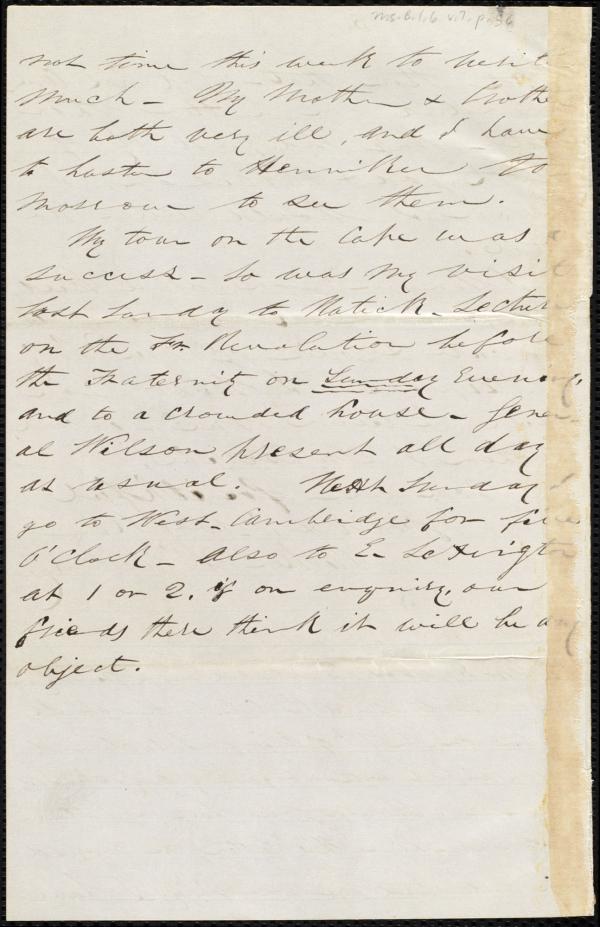 Ms.B.1.6 v.7, p.56
not time this week to write
much - My Mother & Brothe
are both very ill, and I have
to hasten to Henniker to
morrow to see them.
My tour on the Cape was a
success - So was my visit
last Sunday to Natick - Lecture
on the Fr. Revolution before
the Fraternity on Sunday Evening,
and to a crowded house - Gener-
al Wilson present all day
as usual. Next Sunday I
go to West-Cambridge for five
O'Clock - also to E. Lexington
at 1 or 2, if on enquiry, our
friends there think it will be any
object.